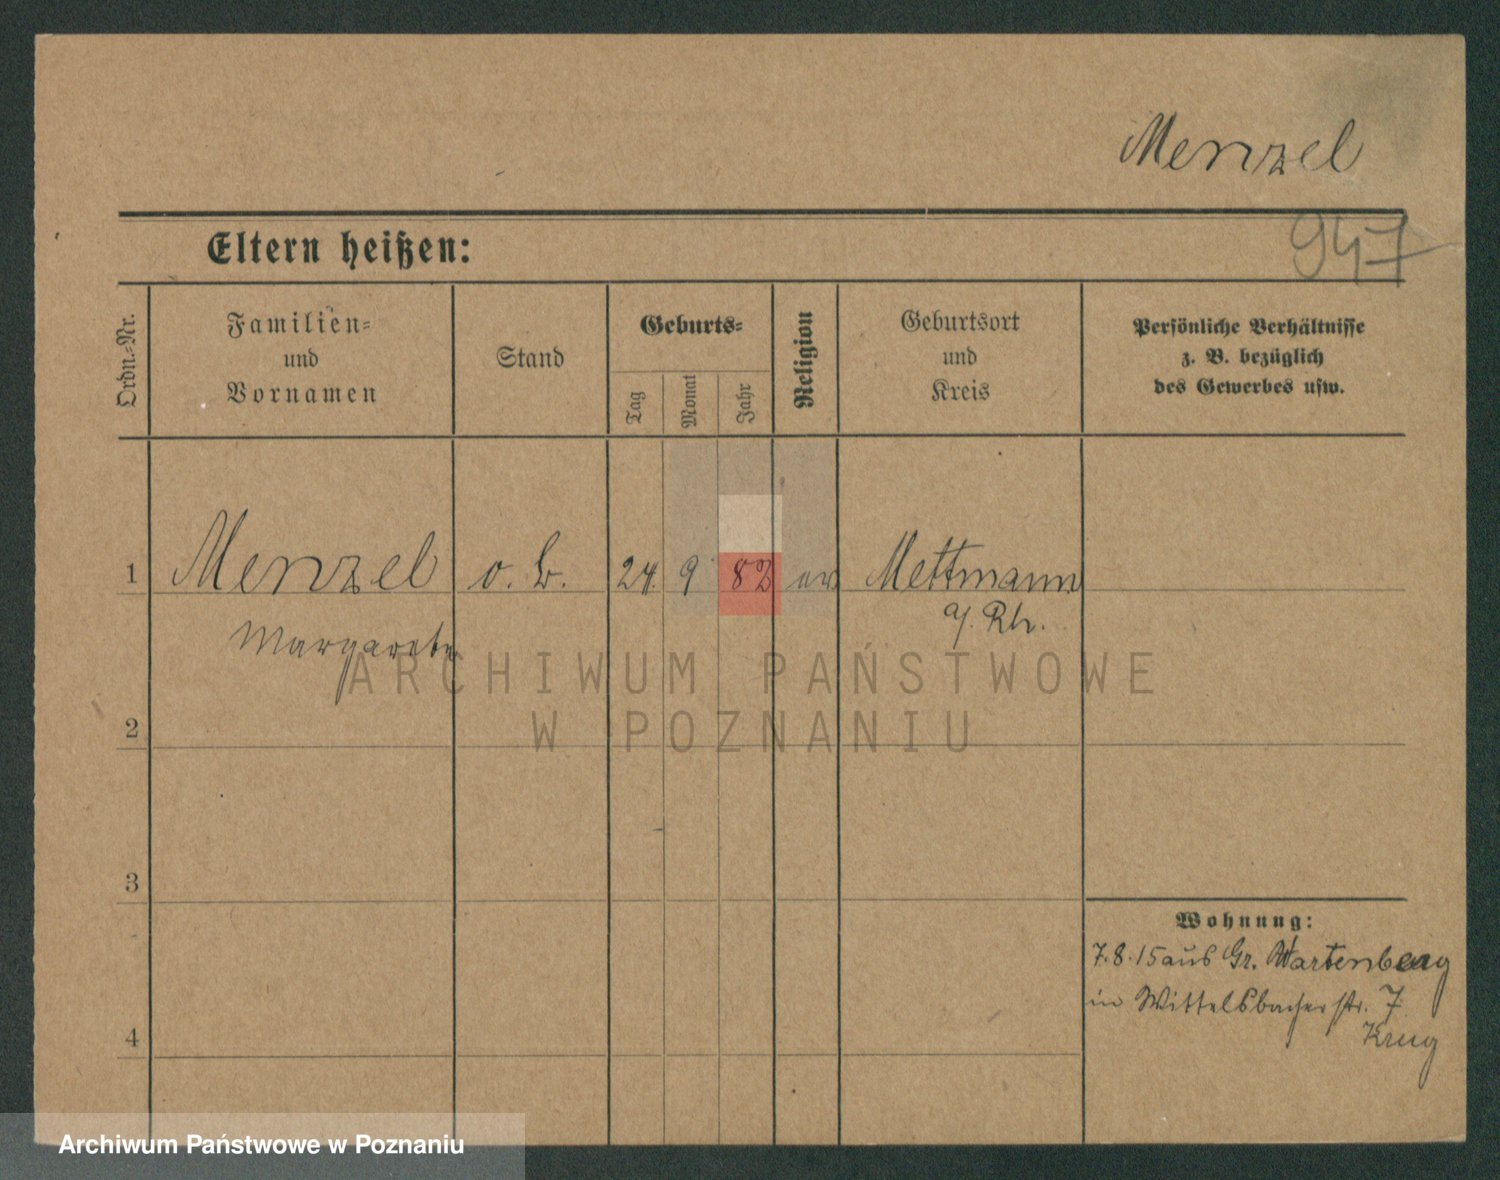 Menzel
947
Eltern heißen:
Ordn.-Nr.
Familien-
und
Vornamen
Stand
Geburts-
Tag
Monat
Jahr
Religion
Geburtsort
und
Kreis
Persönliche Verhältnisse
z. B. bezüglich
des Gewerbes usw.
1 Menzel o. B. 24. 9 82 ev Mettmann
Margarete a/. Rh.
ARCHIWUM PAŃSTWOWE
W POZNANIU
2
3
Wohnung:
7.8.15 aus Gr. Wartenberg
in Wittelsbacherstr. 7
Krug
4
Archiwum Państwowe w Poznaniu